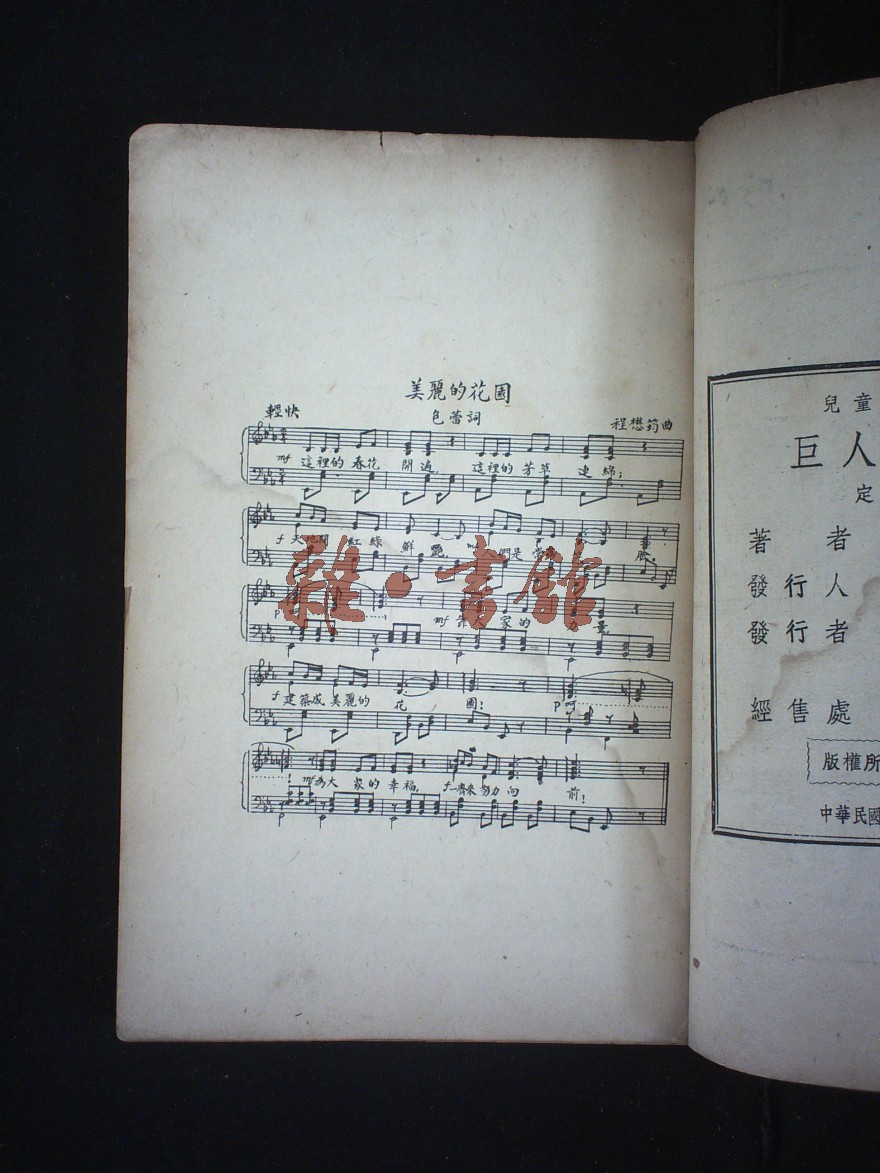 美麗的花園
輕快
包蕾詞
程懋筠曲
mf 這裡的春花 開遍, 這裡的芳草 連綿;
f 紅綠 鮮艷,
P
mf 大家的
f 建築成美麗的 花 園! P 呵
mf 為大 家的幸福, f 一齊來努力向 前!
雜·書館
兒童
巨人
定
著者
發行人
發行者
經售處
版權所
中華民國